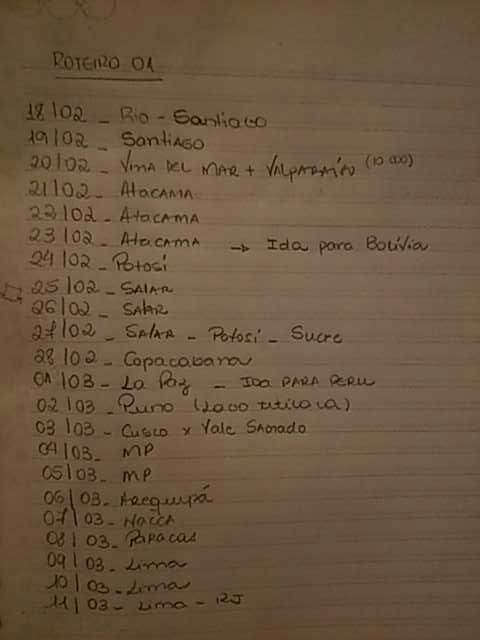 ROTEIRO 01
18/02 - Rio - Santiago
19/02 - SANTIAGO
20/02 - VINA DEL MAR + VALPARAÍSO (10 000)
21/02 - ATACAMA
22/02 - ATACAMA
23/02 - ATACAMA → Ida para Bolívia
24/02 - Potosí
25/02 - SALAR
26/02 - SALAR
27/02 - SALAR - Potosí - Sucre
28/02 - Copacabana
01/03 - La Paz - IDA PARA PERU
02/03 - Puno (Lago titicaca)
03/03 - Cusco x Vale Sagrado
04/03 - MP
05/03 - MP
06/03 - Arequipá
07/03 - NAZCA
08/03 - PARACAS
09/03 - Lima
10/03 - Lima
11/03 - Lima - RJ